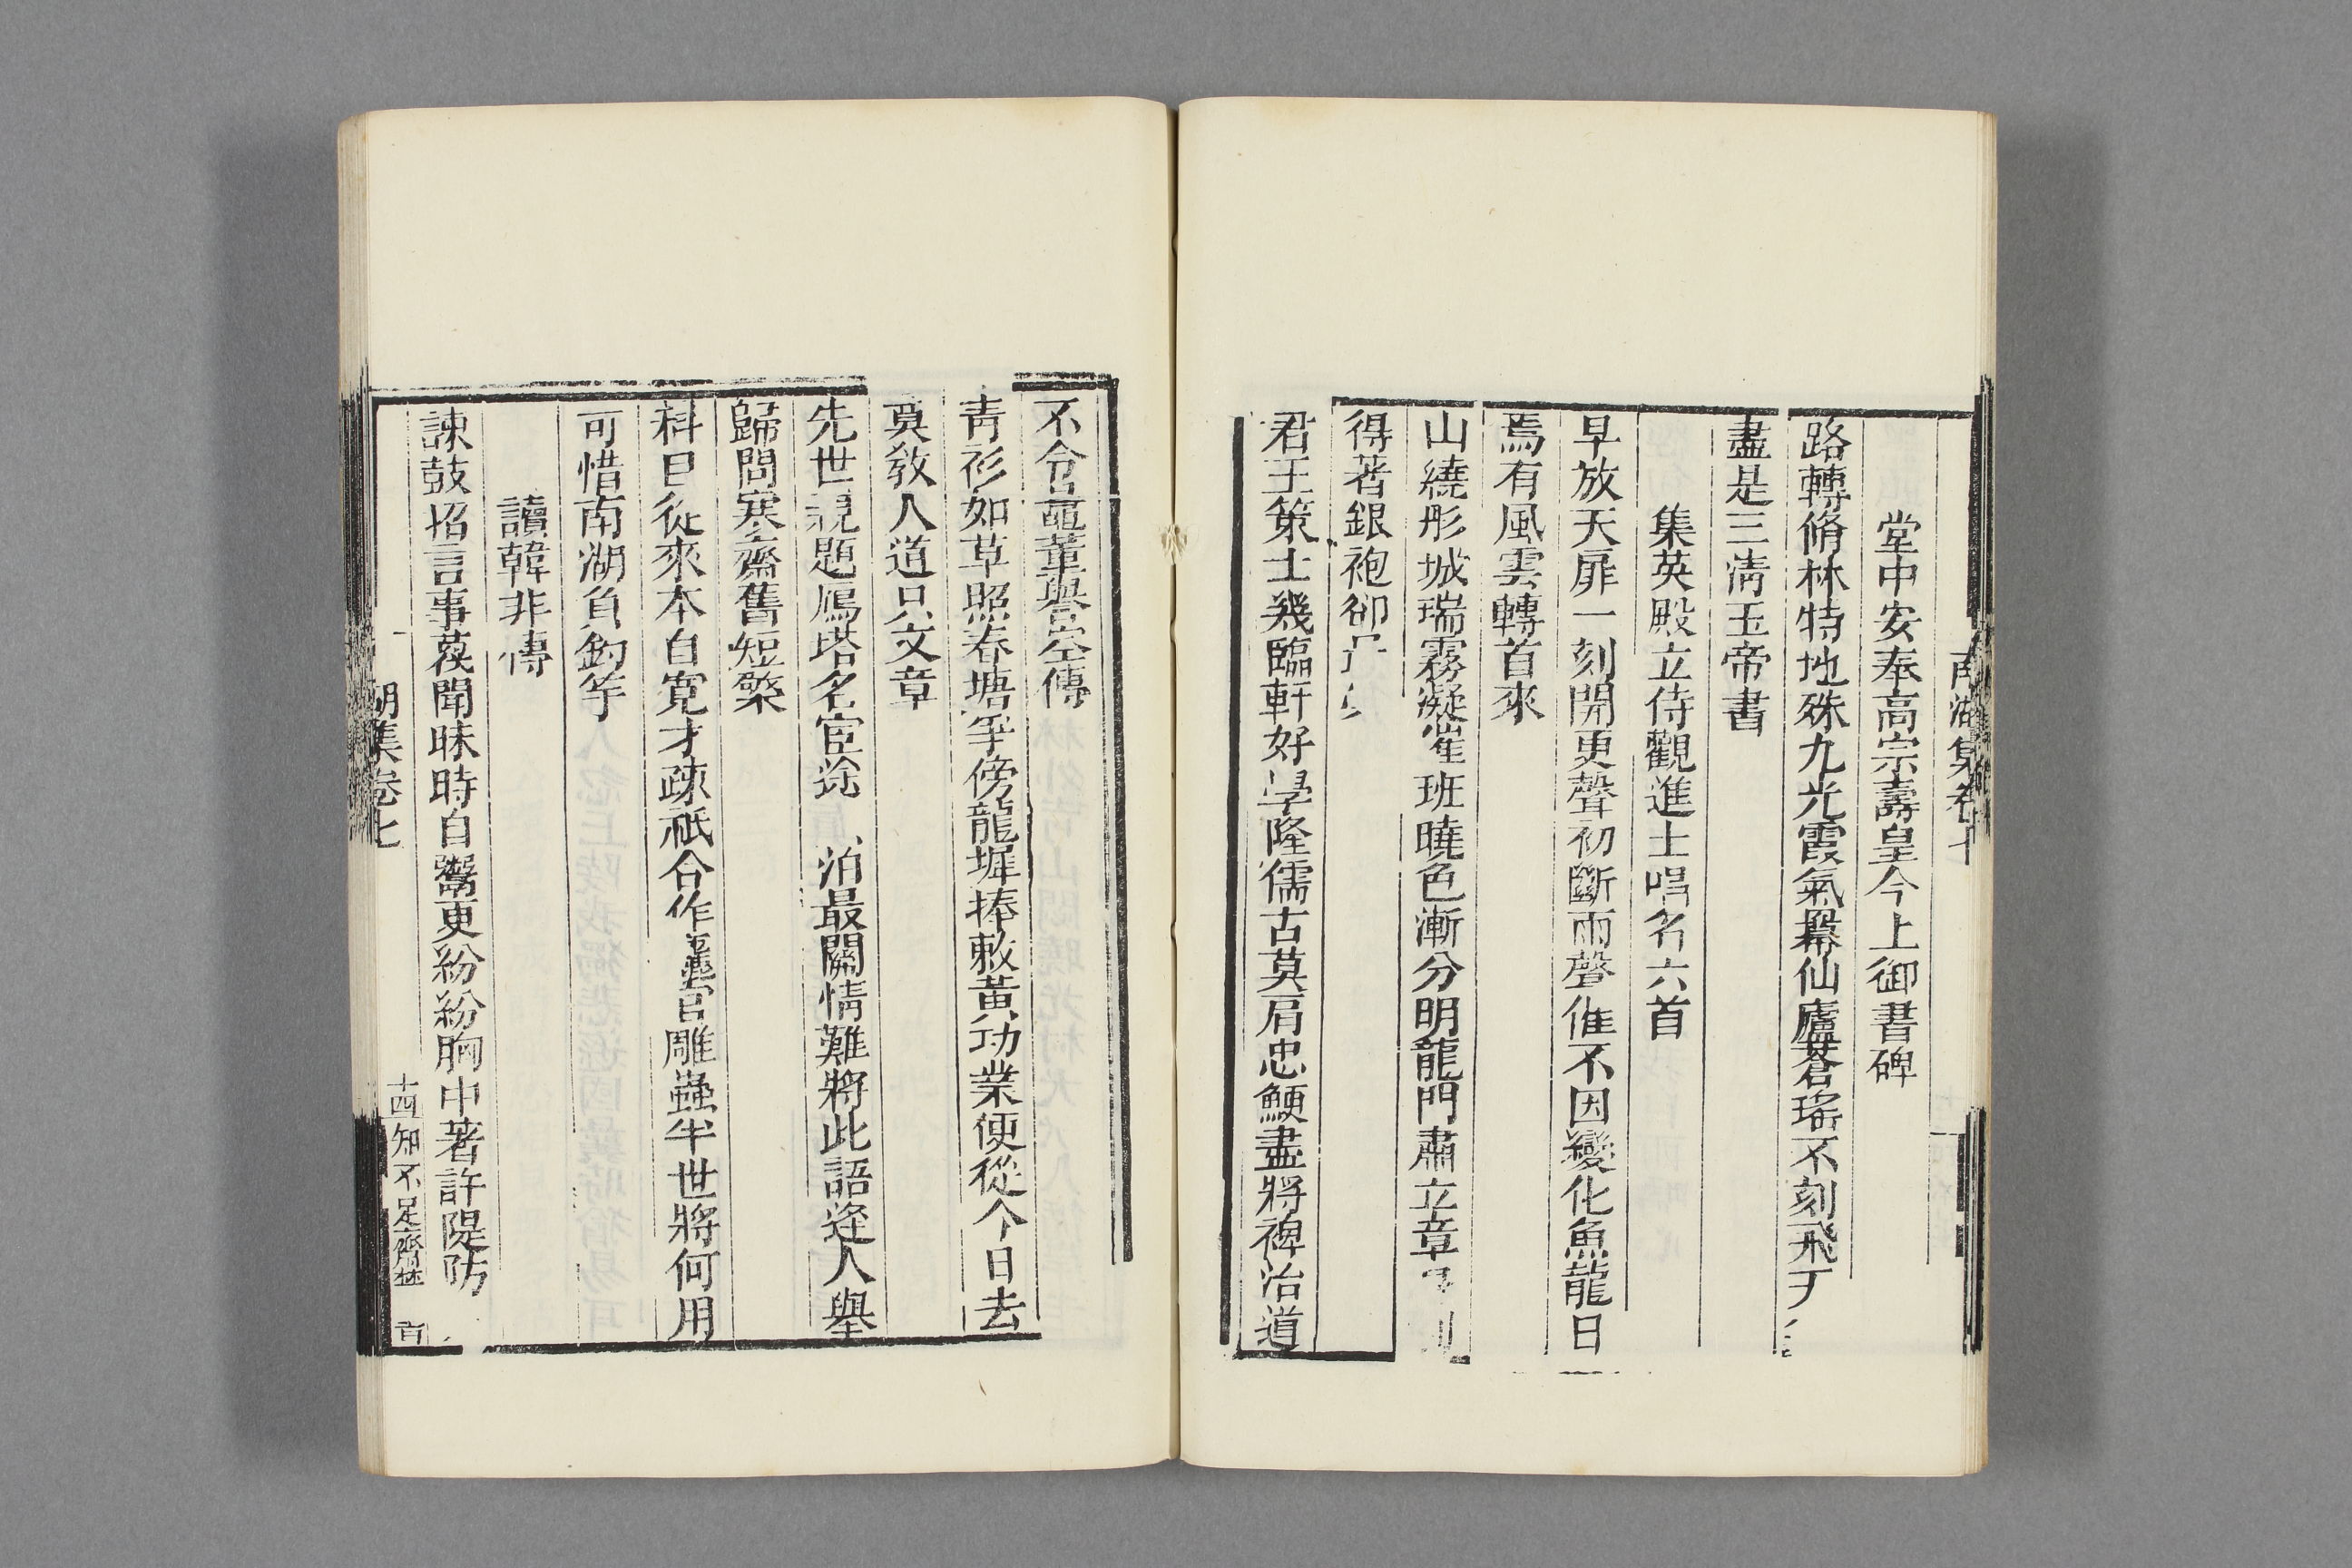 南湖集卷七
堂中安奉高宗壽皇今上御書碑
路轉脩林特地殊九光霞氣羃仙廬蒼瑤不刻飛天
盡是三清玉帝書
集英殿立侍觀進士唱名六首
早放天扉一刻開更聲初斷雨聲催不因變化魚龍日
焉有風雲轉首來
山繞彤城瑞霧凝催班曉色漸分明龍門肅立章
得著銀袍卻
君王策士幾臨軒好學隆儒古莫肩忠鯁盡將裨治道
不令鼂董譽空傳
青衫如草照春塘爭傍龍墀捧敕黃功業便從今日去
莫敎人道只文章
先世親題鴈塔名宦途 泊最關情難將此語逢人舉
歸問寒齋舊短檠
科目從來本自寬才疎祇合作蠶官雕蟲半世將何用
可惜南湖負釣竿
讀韓非傳
諫鼓招言事莫聞昧時自鬻更紛紛胸中著許隄防
湖集卷七
十四 知不足齋叢